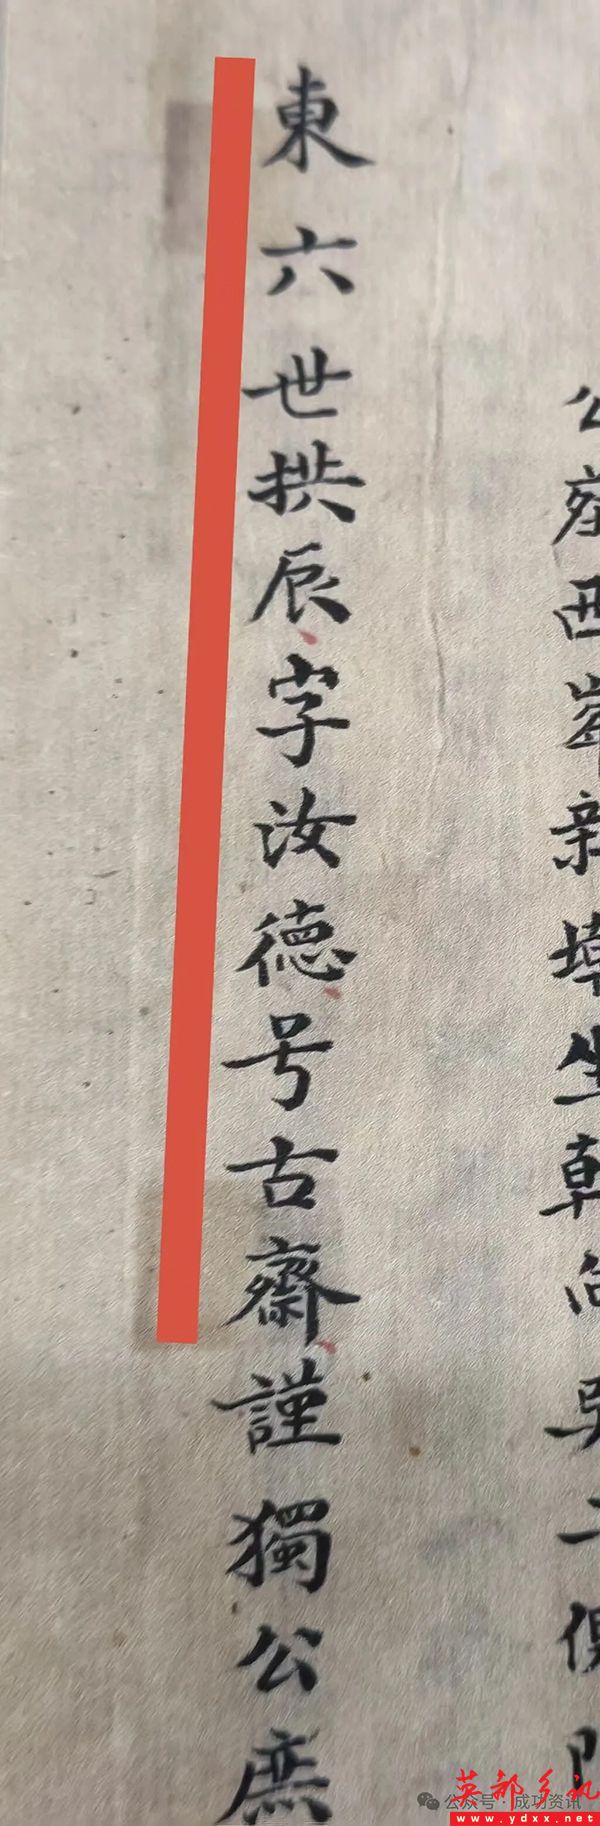 公塟西
新墳坐乾向
東六世拱辰字汝德号古齋謹獨公庶
公众号·成功资讯
英都乡讯
www.ydxx.net